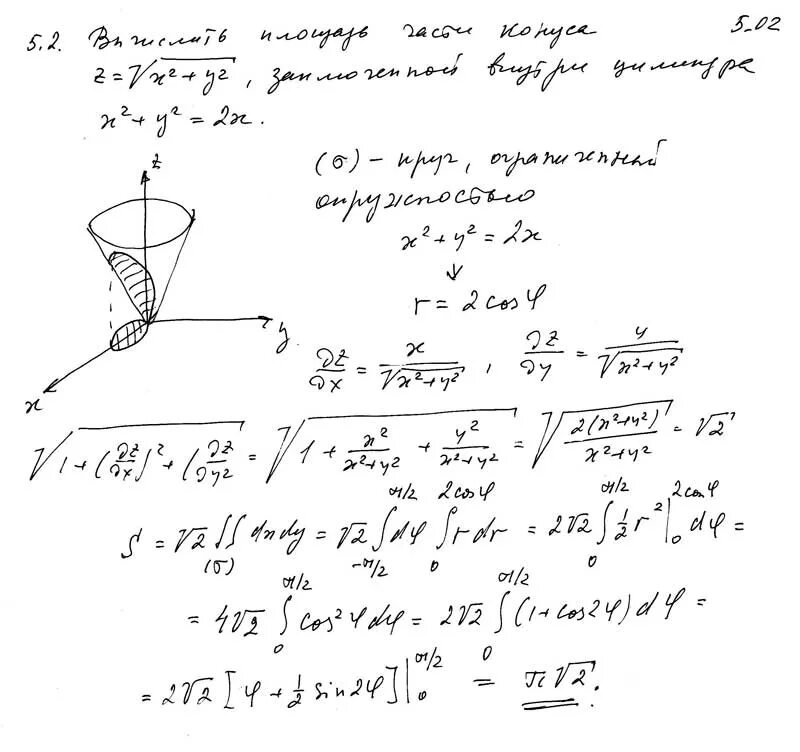 5.2. Вычислить площадь части конуса 5.02
z = √(x² + y²), заключенной внутри цилиндра
x² + y² = 2x.
(σ) – круг, ограниченный
окружностью
x² + y² = 2x
↓
r = 2 cos φ
z
y
x
∂z/∂x = x/√(x²+y²), ∂z/∂y = y/√(x²+y²)
√(1 + (∂z/∂x)² + (∂z/∂y²) = √(1 + x²/(x²+y²) + y²/(x²+y²)) = √(2(x²+y²)/(x²+y²)) = √2
S = √2 ∬_(σ) dxdy = √2 ∫_{-π/2}^{π/2} dφ ∫_0^{2cosφ} r dr = 2√2 ∫_0^{π/2} ½ r² |_0^{2cosφ} dφ =
= 4√2 ∫_0^{π/2} cos²φ dφ = 2√2 ∫_0^{π/2} (1 + cos2φ) dφ =
= 2√2 [φ + ½ sin2φ] |_0^{π/2} = π√2.